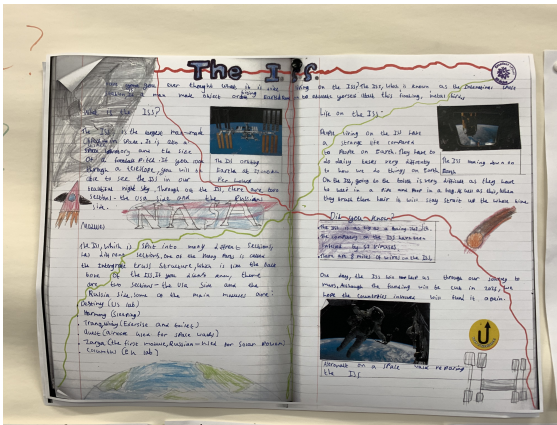 The ISS.
Have you ever thought what it is like
living on the ISS? The ISS, which is known as the
man made object
What is the ISS?
The ISS is the largest man-made
object in space. It is also a
space laboratory and the size
of a football pitch. If you look
through a telescope, you will be
able to see the ISS in our
beautiful night sky. Through out the ISS, there are two
sections - the USA side and the Russian
side.
The ISS orbiting
Earth at
Per hour
NASA
Modules
the ISS, which is split into many different sections,
has different sections, one of the many parts is called
the Integrated Truss Structure, which is like the back
bone of the ISS. If you didn't know, there
are two sections - the USA side and the
Russia side. Some of the main modules are:
Destiny (US lab)
Harmony (sleeping)
Tranquility (Exercise and toilet)
Quest (airlock used for space walks)
Zarya (the first module, Russian - used for Solar Power)
Columbus (EU lab)
Life on the ISS:
People living on the ISS have
a strange life compared
to people on Earth. They have to
do daily tasks very differently
to how we do things on Earth.
On the ISS, going to the toilet is very difficult as they have
to
they brush there hair it will stay straight up the whole time.
The ISS coming down on
Earth
Did you know?
The ISS is as big as a football pitch.
The computers on the ISS have been
infected by viruses.
There are 8 miles of wires on the ISS.
One day, the ISS will our journey to
Mars. Although the funding will be cut in
hope the countries involved will fund it again.
Astronaut on a space walk repairing
the ISS